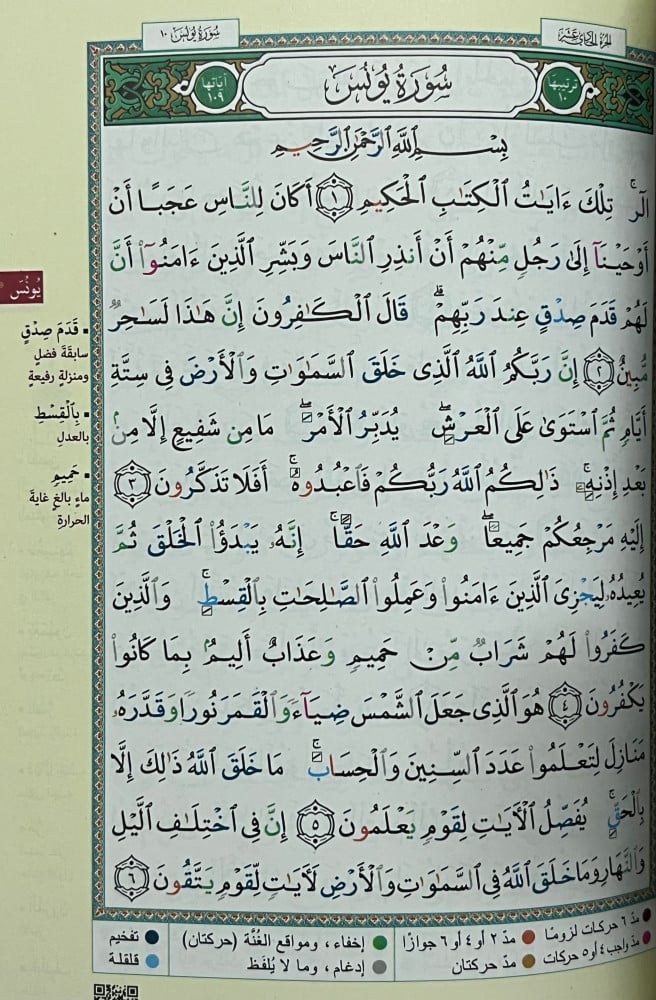 الجزء الحادي عشر
سورة يونس ١٠
ترتيبها ١٠
سُورَةُ يُونُسَ
آياتها ١٠٩
بِسْمِ ٱللَّهِ ٱلرَّحْمَٰنِ ٱلرَّحِيمِ
الٓر ۚ تِلْكَ ءَايَٰتُ ٱلْكِتَٰبِ ٱلْحَكِيمِ ١ أَكَانَ لِلنَّاسِ عَجَبًا أَنْ
أَوْحَيْنَآ إِلَىٰ رَجُلٍ مِّنْهُمْ أَنْ أَنذِرِ ٱلنَّاسَ وَبَشِّرِ ٱلَّذِينَ ءَامَنُوٓا۟ أَنَّ
لَهُمْ قَدَمَ صِدْقٍ عِندَ رَبِّهِمْ ۗ قَالَ ٱلْكَٰفِرُونَ إِنَّ هَٰذَا لَسَٰحِرٌ
مُّبِينٌ ٢ إِنَّ رَبَّكُمُ ٱللَّهُ ٱلَّذِى خَلَقَ ٱلسَّمَٰوَٰتِ وَٱلْأَرْضَ فِى سِتَّةِ
أَيَّامٍ ثُمَّ ٱسْتَوَىٰ عَلَى ٱلْعَرْشِ ۖ يُدَبِّرُ ٱلْأَمْرَ ۖ مَا مِن شَفِيعٍ إِلَّا مِنۢ
بَعْدِ إِذْنِهِۦ ۚ ذَٰلِكُمُ ٱللَّهُ رَبُّكُمْ فَٱعْبُدُوهُ ۚ أَفَلَا تَذَكَّرُونَ ٣
إِلَيْهِ مَرْجِعُكُمْ جَمِيعًا ۖ وَعْدَ ٱللَّهِ حَقًّا ۚ إِنَّهُۥ يَبْدَؤُا۟ ٱلْخَلْقَ ثُمَّ
يُعِيدُهُۥ لِيَجْزِىَ ٱلَّذِينَ ءَامَنُوا۟ وَعَمِلُوا۟ ٱلصَّٰلِحَٰتِ بِٱلْقِسْطِ ۚ وَٱلَّذِينَ
كَفَرُوا۟ لَهُمْ شَرَابٌ مِّنْ حَمِيمٍ وَعَذَابٌ أَلِيمٌۢ بِمَا كَانُوا۟
يَكْفُرُونَ ٤ هُوَ ٱلَّذِى جَعَلَ ٱلشَّمْسَ ضِيَآءً وَٱلْقَمَرَ نُورًا وَقَدَّرَهُۥ
مَنَازِلَ لِتَعْلَمُوا۟ عَدَدَ ٱلسِّنِينَ وَٱلْحِسَابَ ۚ مَا خَلَقَ ٱللَّهُ ذَٰلِكَ إِلَّا
بِٱلْحَقِّ ۚ يُفَصِّلُ ٱلْءَايَٰتِ لِقَوْمٍ يَعْلَمُونَ ٥ إِنَّ فِى ٱخْتِلَٰفِ ٱلَّيْلِ
وَٱلنَّهَارِ وَمَا خَلَقَ ٱللَّهُ فِى ٱلسَّمَٰوَٰتِ وَٱلْأَرْضِ لَءَايَٰتٍ لِّقَوْمٍ يَتَّقُونَ ٦
يُونُسَ
قَدَمَ صِدْقٍ
سابقَةَ فضلٍ
ومنزلةٍ رفيعةٍ
بِٱلْقِسْطِ
بالعدلِ
حَمِيمٍ
ماءٍ بالغٍ غايةَ
الحرارةِ
مدّ ٦ حركات لزومًا
مدّ ٢ أو ٤ أو ٦ جوازًا
إخفاء، ومواقع الغُنَّة (حركتان)
تفخيم
مدّ واجب ٤ أو ٥ حركات
مدّ حركتان
إدغام، وما لا يُلفَظ
قلقلة